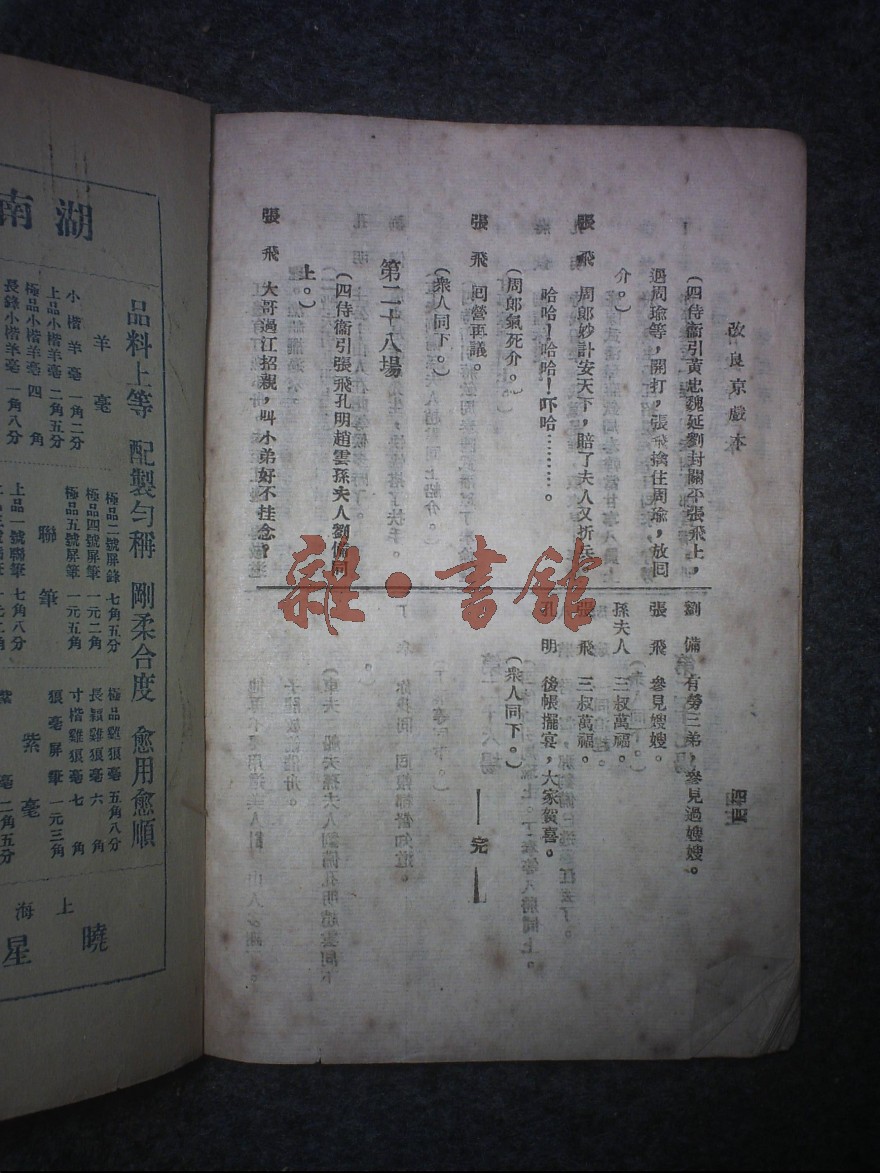 改良京戲本
(四侍衞引黃忠魏延劉封關平張飛上,
遇周瑜等,開打,張飛擒住周瑜,放回
介。)
張飛 周郎妙計安天下,賠了夫人又折兵。
哈哈!哈哈!吓哈………。
(周郎氣死介。)
張飛 回營再議。
(衆人同下。)
第二十八場
(四侍衞引張飛孔明趙雲孫夫人劉備同
上。)
張飛 大哥過江招親,叫小弟好不挂念?
劉備 有勞三弟,參見過嫂嫂。
張飛 參見嫂嫂。
孫夫人 三叔萬福。
張飛 三叔萬福。
孔明 後帳擺宴,大家賀喜。
(衆人同下。)
完
四四
雜·書館
湖南
品料上等 配製勻稱 剛柔合度 愈用愈順
羊毫
小楷羊毫 一角二分
上品小楷羊毫 二角五分
極品小楷羊毫 四角
長鋒小楷羊毫 一角八分
聯筆
極品二號屏鋒 七角五分
極品四號屏筆 一元二角
極品五號屏筆 一元五角
上品一號聯筆 七角八分
紫毫
極品雞狼毫 五角八分
長穎雞狼毫 六角
寸楷雞狼毫 七角
狼毫屏筆 一元三角
二角五分
上海
曉星